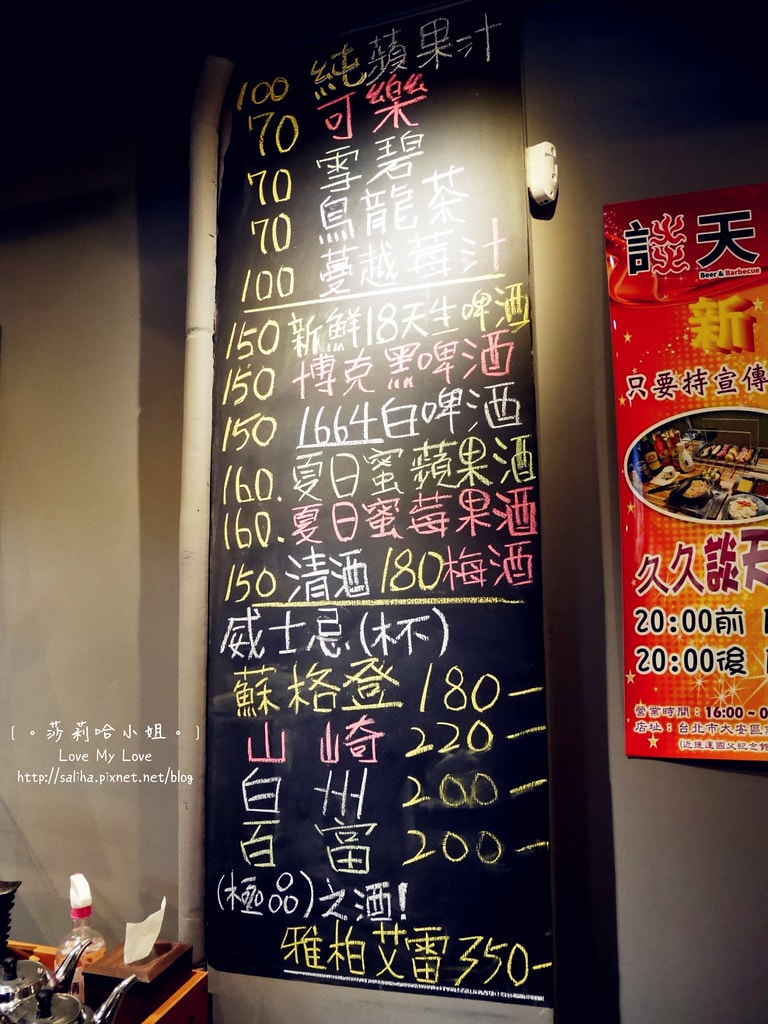 100 純蘋果汁
70 可樂
70 雪碧
70 烏龍茶
100 蔓越莓汁
150 新鮮18天生啤酒
150 博克黑啤酒
150 1664白啤酒
160. 夏日蜜蘋果酒
160. 夏日蜜莓果酒
150 清酒 180 梅酒
威士忌(杯)
蘇格登 180-
山崎 220-
白州 200-
百富 200-
(極品)之酒!
雅柏艾雷 350-
談天
Beer & Barbecue
新
只要持宣傳
久久談天
20:00前
20:00後
營業時間：16:00~0
店址：台北市大安區
(近捷運國父紀念館
〔。莎莉哈小姐。〕
Love My Love
http://saliha.pixnet.net/blog